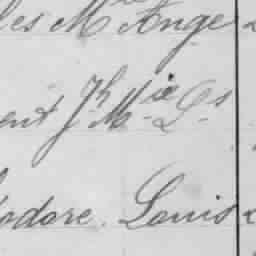 les Mie Ange
ent Jh Mie Ls
odore. Louis